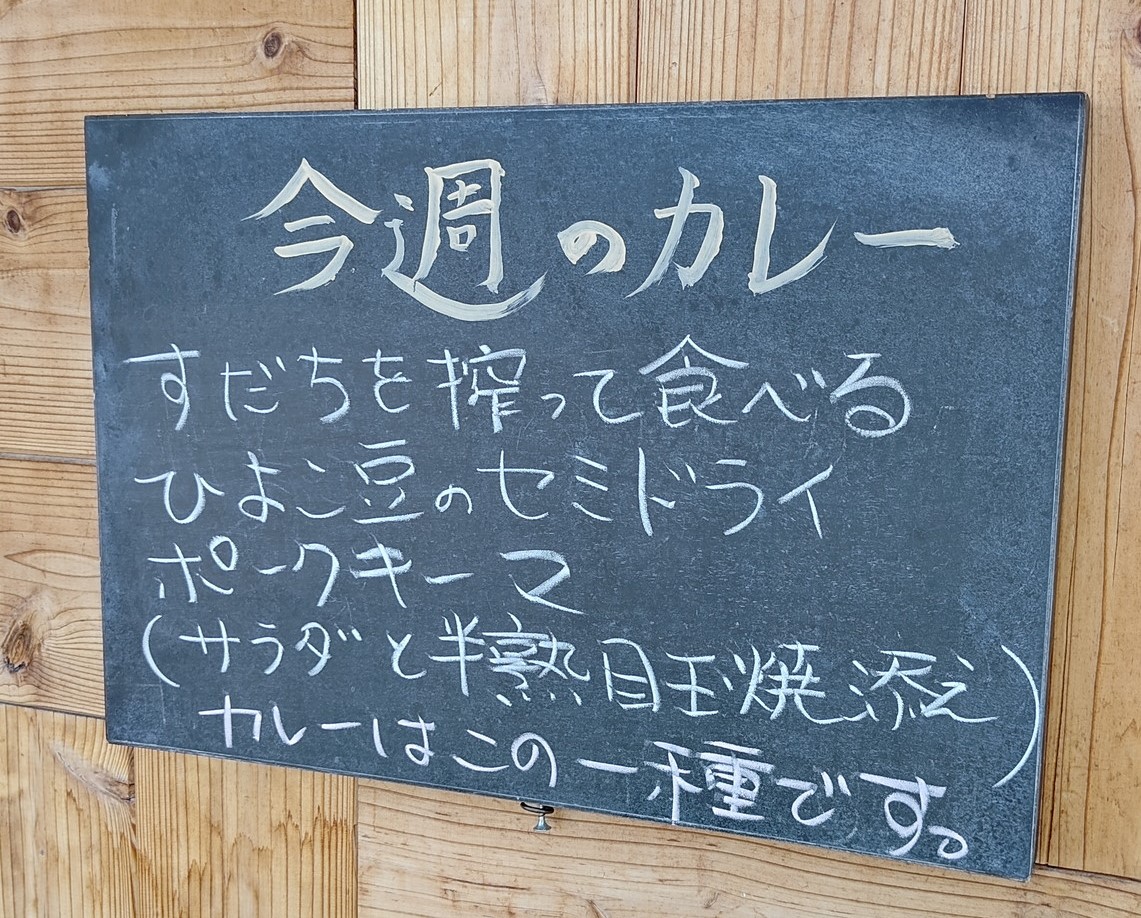 今週のカレー
すだちを搾って食べる
ひよこ豆のセミドライ
ポークキーマ
(サラダと半熟目玉焼添え)
カレーはこの一種です。